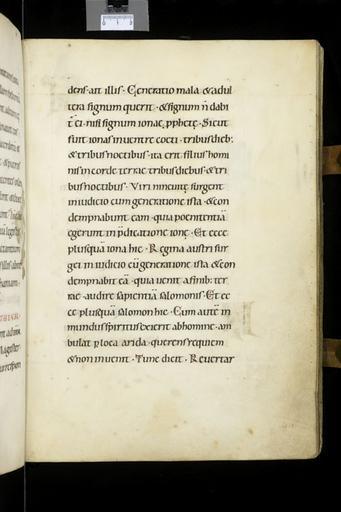 dens · ait illis · Generatio mala & adul
tera signum querit · & signum ñ dabi
t̃ ei · nisi signum ionae ꝓphetę · Sicut
fuit ionas inuentre coeti · tribus dieb;
& tribus noctibus · ita erit filius homi
nis in corde terrae tribus diebus & tri
bus noctibus · Viri nineuitę surgent
in iudicio cum generatione ista & con
dempnabunt eam · quia poenitentiã
egerunt in p̃dicatione ionę · Et ecce
plusquã iona hic · Regina austri sur
get in iudicio cũ generatione ista & con
dempnabit eã · quia uenit a finib; ter
rae audire sapientiã salomonis · Et ec
ce plusquã salomon hic · Cum autẽ in
mundus spiritus exierit abhomine · am
bulat ꝑ loca arida · querens requiem
& non inuenit · Tunc dicit · Reuertar